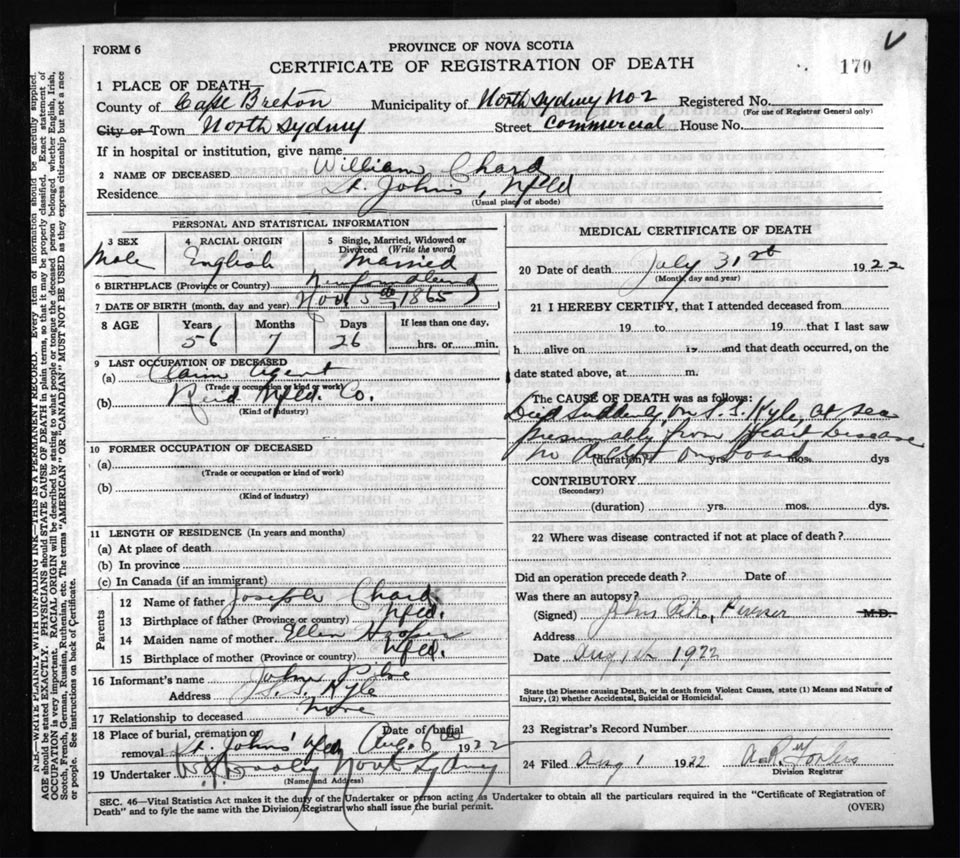 FORM 6
PROVINCE OF NOVA SCOTIA
CERTIFICATE OF REGISTRATION OF DEATH
170
1 PLACE OF DEATH—
County of Cape Breton Municipality of North Sydney No 2 Registered No.
(For use of Registrar General only)
City or Town North Sydney Street Commercial House No.
If in hospital or institution, give name
2 NAME OF DECEASED William Chard
Residence St. Johns Nfld
(Usual place of abode)
PERSONAL AND STATISTICAL INFORMATION
3 SEX Male
4 RACIAL ORIGIN English
5 Single, Married, Widowed or Divorced (Write the word) Married
6 BIRTHPLACE (Province or Country) Newfoundland
7 DATE OF BIRTH (month, day and year) Nov 5th, 1865
8 AGE Years Months Days If less than one day,
56 7 26 hrs. or min.
9 LAST OCCUPATION OF DECEASED
(a) Claim Agent
(Trade or occupation or kind of work)
(b) Reid Nfld. Co.
(Kind of industry)
10 FORMER OCCUPATION OF DECEASED
(a)
(Trade or occupation or kind of work)
(b)
(Kind of industry)
11 LENGTH OF RESIDENCE (In years and months)
(a) At place of death
(b) In province
(c) In Canada (if an immigrant)
Parents
12 Name of father Joseph Chard
13 Birthplace of father (Province or country) Nfld.
14 Maiden name of mother Ellen
15 Birthplace of mother (Province or country) Nfld.
16 Informant's name John
Address S. S. Kyle
17 Relationship to deceased None
18 Place of burial, cremation or removal St. Johns' Nfld Date of burial Aug. 6 1922
19 Undertaker Dooley North Sydney
(Name and address)
MEDICAL CERTIFICATE OF DEATH
20 Date of death July 31st 1922
(Month, day and year)
21 I HEREBY CERTIFY, that I attended deceased from
19 to 19 that I last saw
h alive on 19 and that death occurred, on the
date stated above, at m.
The CAUSE OF DEATH was as follows:
Died suddenly on S. S. Kyle, at sea
presumally from Heart Disease
no doctor on board
(duration) yrs. mos. dys
CONTRIBUTORY
(Secondary)
(duration) yrs. mos. dys.
22 Where was disease contracted if not at place of death?
Did an operation precede death? Date of
Was there an autopsy?
(Signed) John Purser M.D.
Address
Date Aug 1st 1922
State the Disease causing Death, or in death from Violent Causes, state (1) Means and Nature of
Injury, (2) whether Accidental, Suicidal or Homicidal.
23 Registrar's Record Number
24 Filed Aug 1 1922
Division Registrar
SEC. 46—Vital Statistics Act makes it the duty of the Undertaker or person acting as Undertaker to obtain all the particulars required in the "Certificate of Registration of
Death" and to fyle the same with the Division Registrar who shall issue the burial permit.
(OVER)
N.B.—WRITE PLAINLY WITH UNFADING INK—THIS IS A PERMANENT RECORD. Every item of information should be carefully supplied.
AGE should be stated EXACTLY. PHYSICIANS should STATE CAUSE OF DEATH in plain terms, so that it may be properly classified. Exact statement of
OCCUPATION is very important. RACIAL ORIGIN will be described by stating to what people or tongue the deceased person belonged whether English, Irish,
Scotch, French, German, Russian, Ruthenian, etc. The terms "AMERICAN" OR "CANADIAN" MUST NOT BE USED as they express citizenship but not a race
or people. See instructions on back of Certificate.